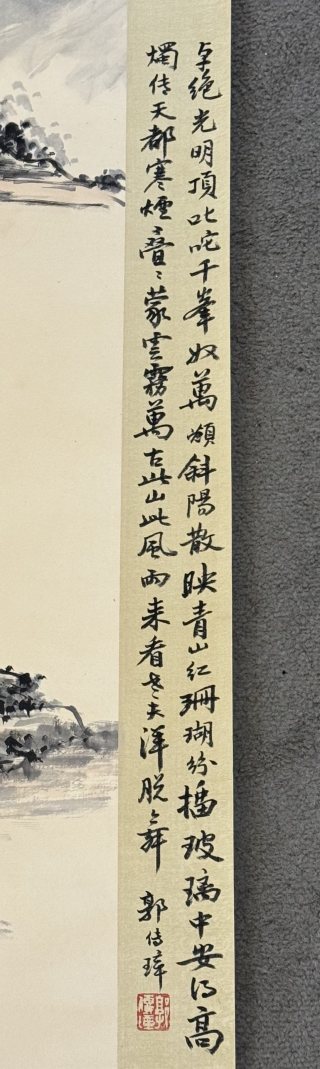 卓绝光明頂叱咤千峯奴萬頃斜陽散映青山红珊瑚紛插玻璃中安得高
燭传天都寒煙疊〻蒙雲霧萬古此山此風雨来看老夫洋脱舞
郭传璋